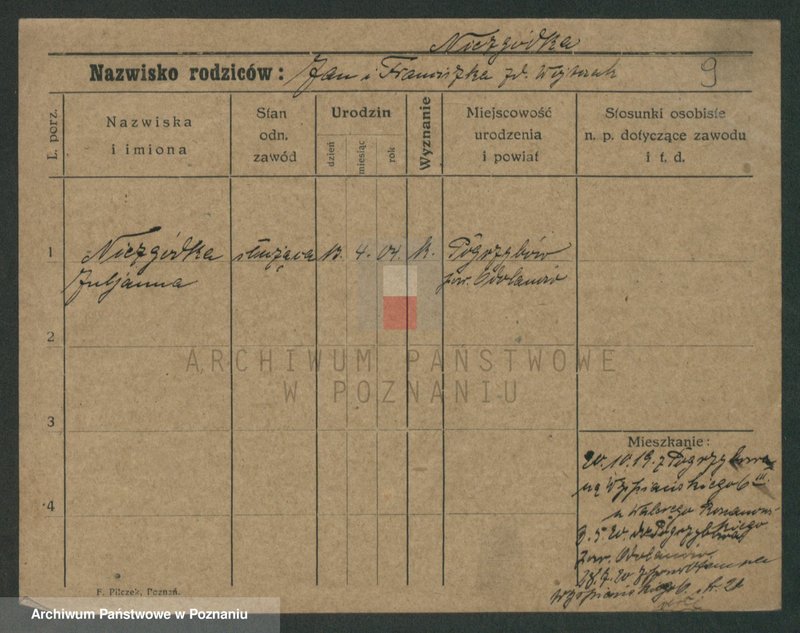 Niezgódka
Nazwisko rodziców: Jan i Franciszka zd. Wojtczak 9
L. porz.
Nazwiska
i imiona
Stan
odn.
zawód
Urodzin
dzień
miesiąc
rok
Wyznanie
Miejscowość
urodzenia
i powiat
Stosunki osobiste
n. p. dotyczące zawodu
i t. d.
1 Niezgódka służąca 13. 4. 04. k. Pogrzybów
Juljanna pow. Odolanów
2
ARCHIWUM PAŃSTWOWE
W POZNANIU
3
Mieszkanie:
20.10.19. z Pogrzybowa
na Wyspiańskiego 6 III
u
4
3.5.20. do Pogrzybowa
pow. Odolanów
28.7.20 z powrotem
Wyspiańskiego
F. Pilczek, Poznań.
Archiwum Państwowe w Poznaniu